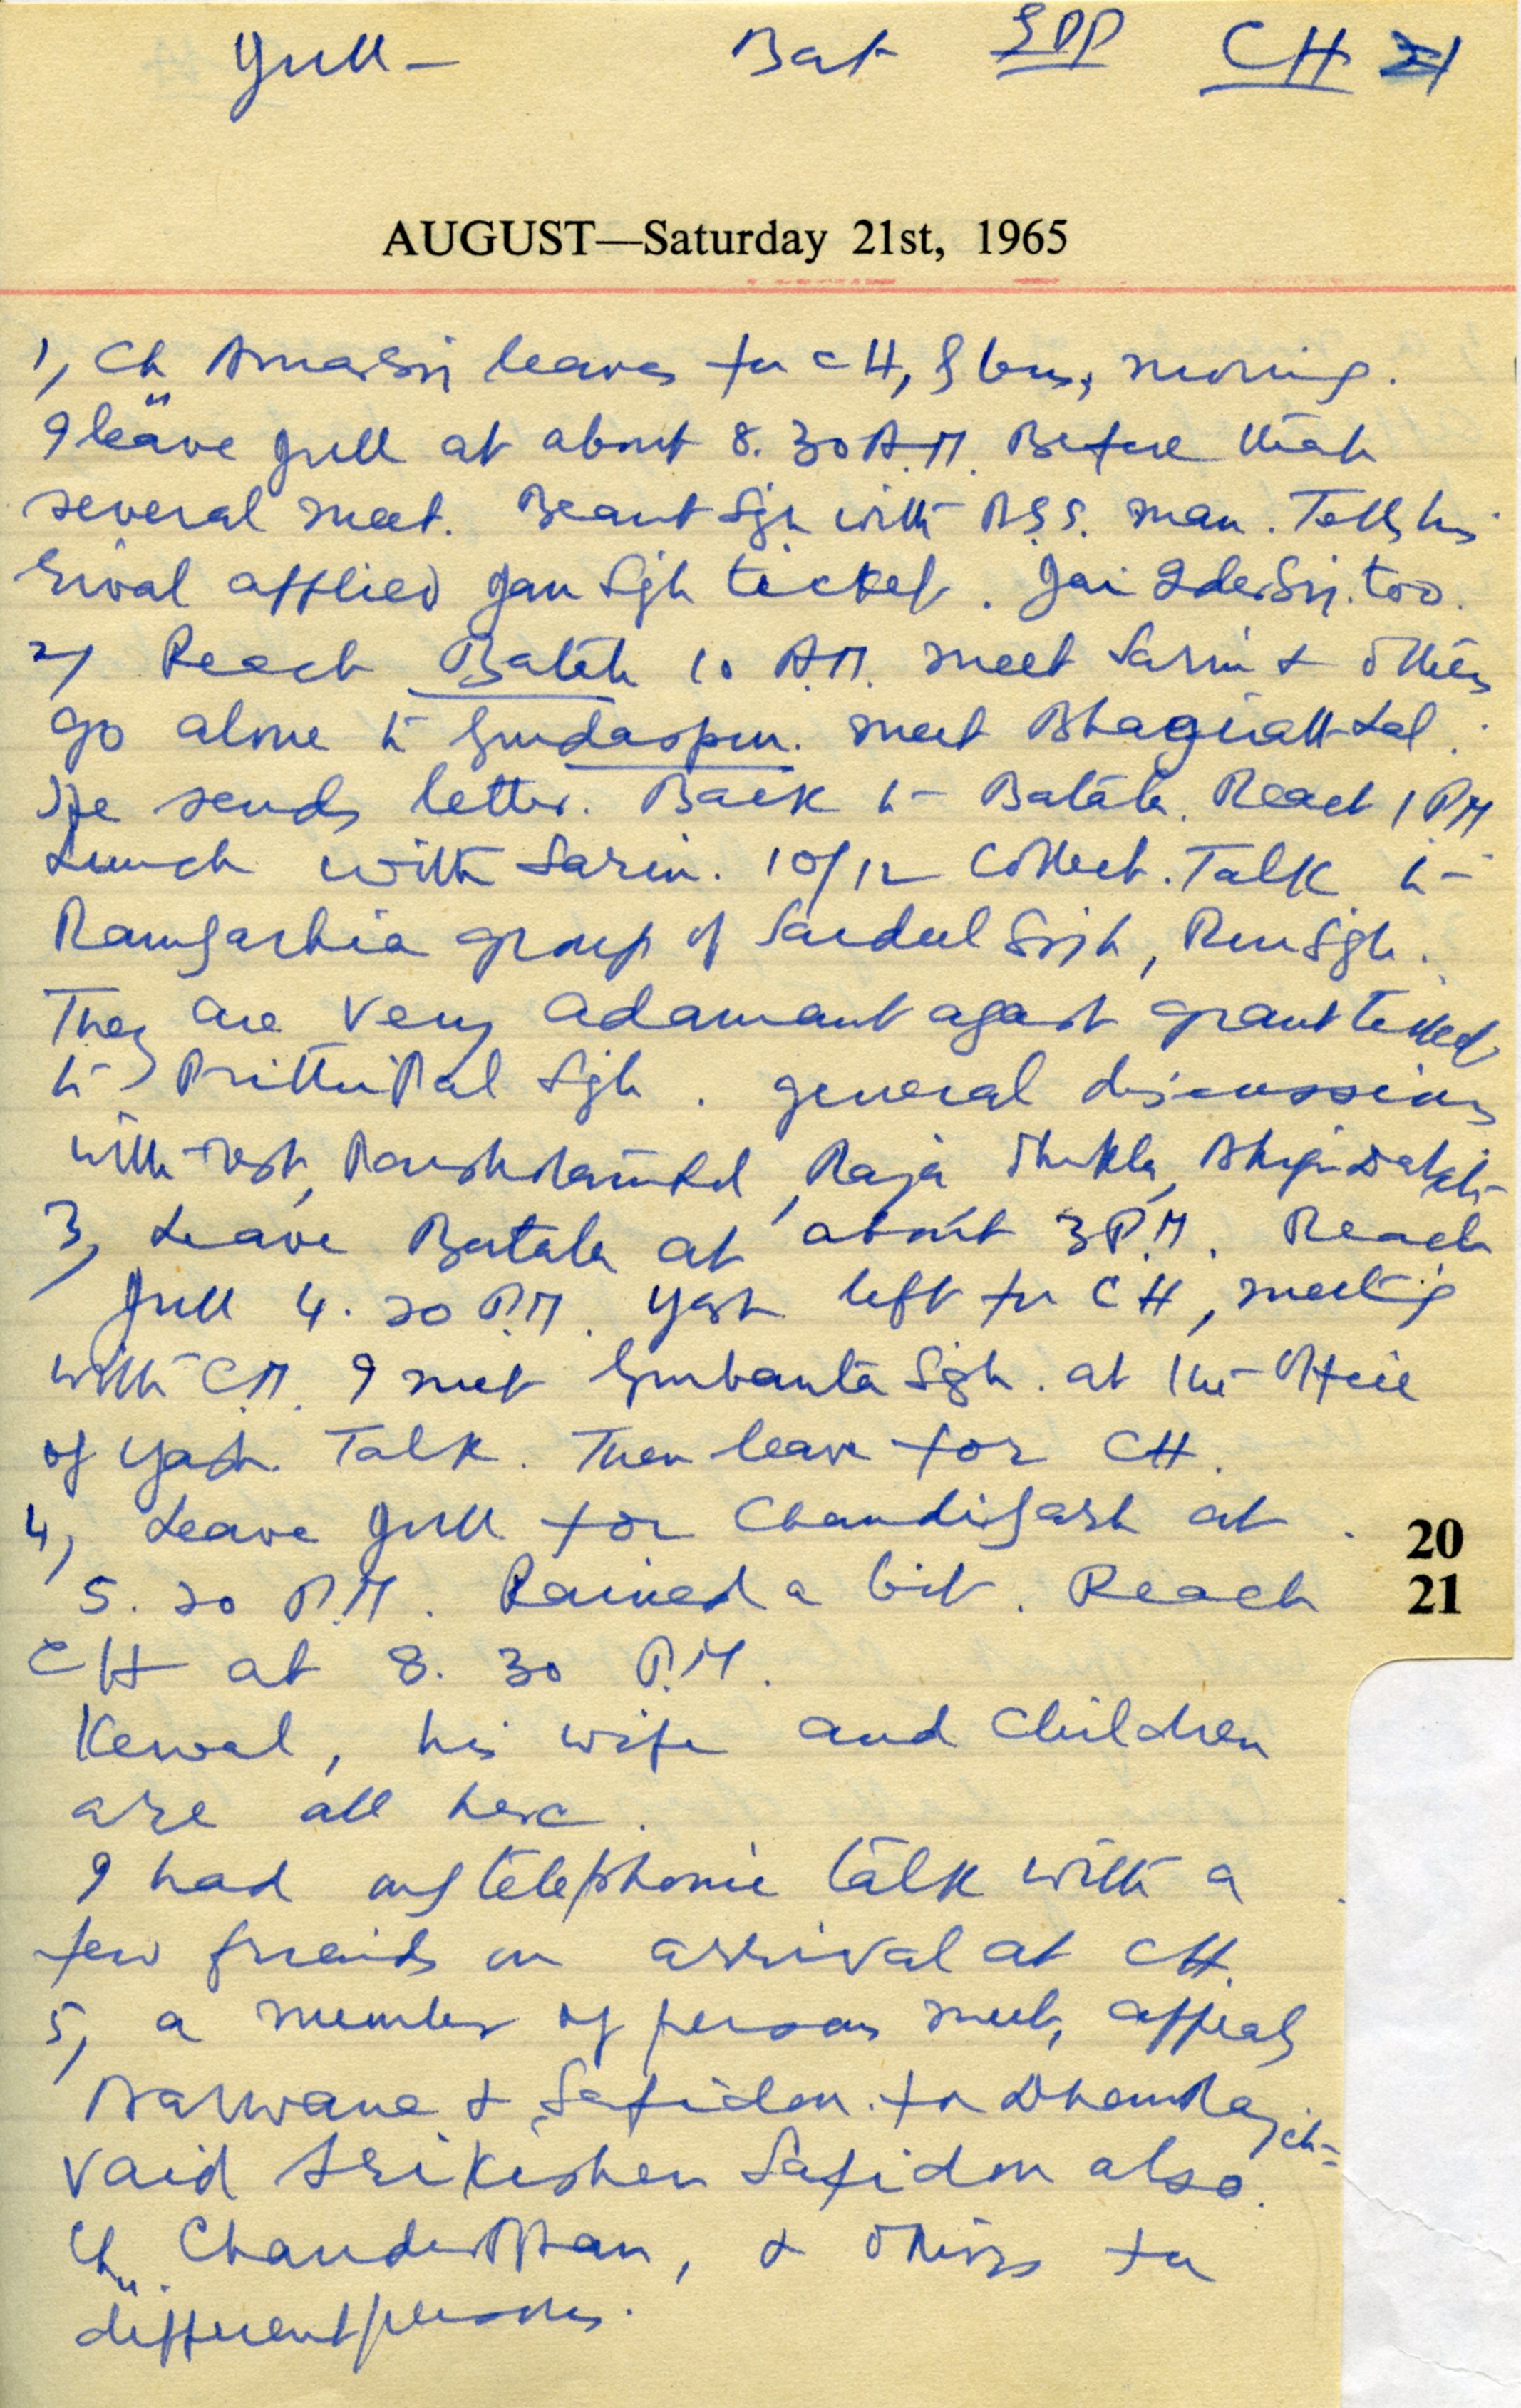 Jull – Bat GDP CH
AUGUST—Saturday 21st, 1965
1, Ch Amarsingh leaves for CH, morning.
I leave Jull at about 8.30 A.M. Before that
several meet. Beant Sgh with R.S.S. man. Tells his
rival applied Jan Sgh ticket. Jai too.
2, Reach Batala 10 A.M. meet Sarin & others
go alone to Gurdaspur. meet Bhagirath Lal.
He sends letter. Back to Batala. Reach 1 PM
Lunch with Sarin. 10/12 collect. Talk to
Ramgarhia group of Sardul Singh, Sgh.
They are very adamant against grant ticket
to PrithiPal Sgh. general discussions
with rest, Raja Shukla,
3, Leave Batala at about 3 P.M. Reach
Jull 4.20 P.M. Yash left for CH, meeting
with C.M. I meet Gurbanta Sgh. at the office
of Yash. Talk. Then leave for CH.
4, Leave Jull for Chandigarh at
20
5.20 P.M. Rained a bit. Reach
21
CH at 8.30 P.M.
Kewal, his wife and children
are all here.
I had my telephonic talk with a
few friends on arrival at CH.
5, a number of persons meet, appeals
Narwana & Safidon. for
Vaid Srikishen Safidon also.
Ch. ChanderBhan, & others for
different persons.